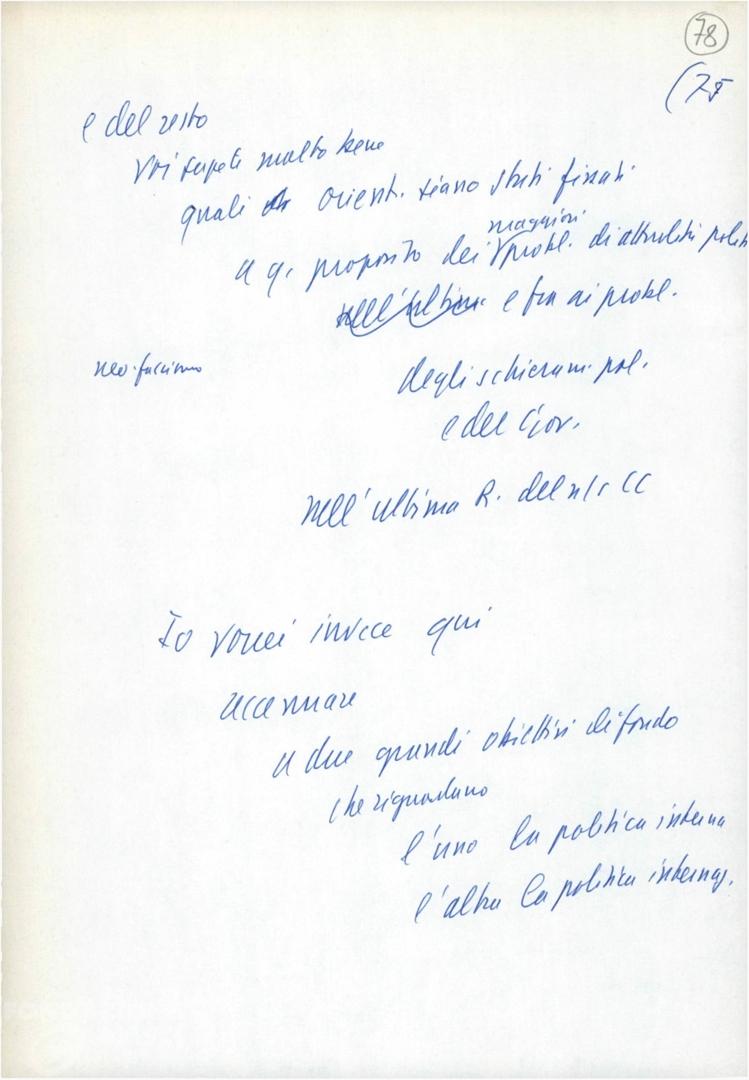 78
(75
e del resto
voi sapete molto bene
quali orient. siano stati fissati
maggiori
a q. proposito dei probl. di attualità polit
nell'ultima e fra ai probl.
neo-fascismo
degli schieram. pol.
e del Gov.
nell'ultima R. del n/s CC
Io vorrei invece qui
accennare
a due grandi obiettivi di fondo
che riguardano
l'uno la politica interna
l'altro la politica internaz.